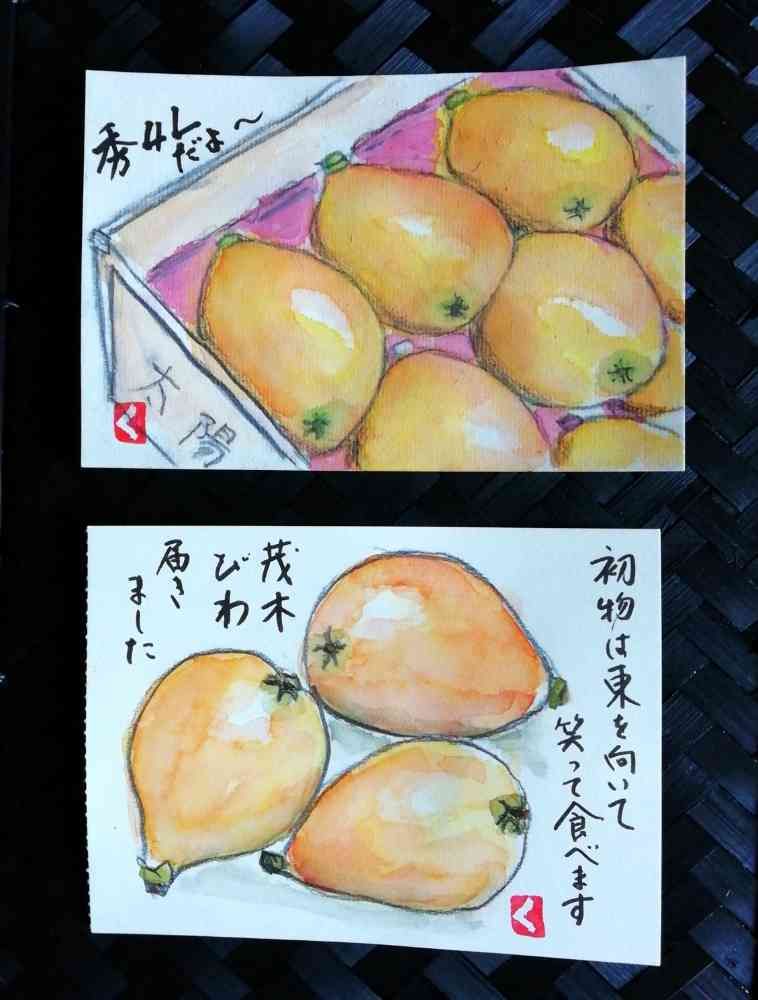 秀4Lだよ〜
太陽
く
初物は東を向いて
笑って食べます
茂木
びわ
届き
ました
く